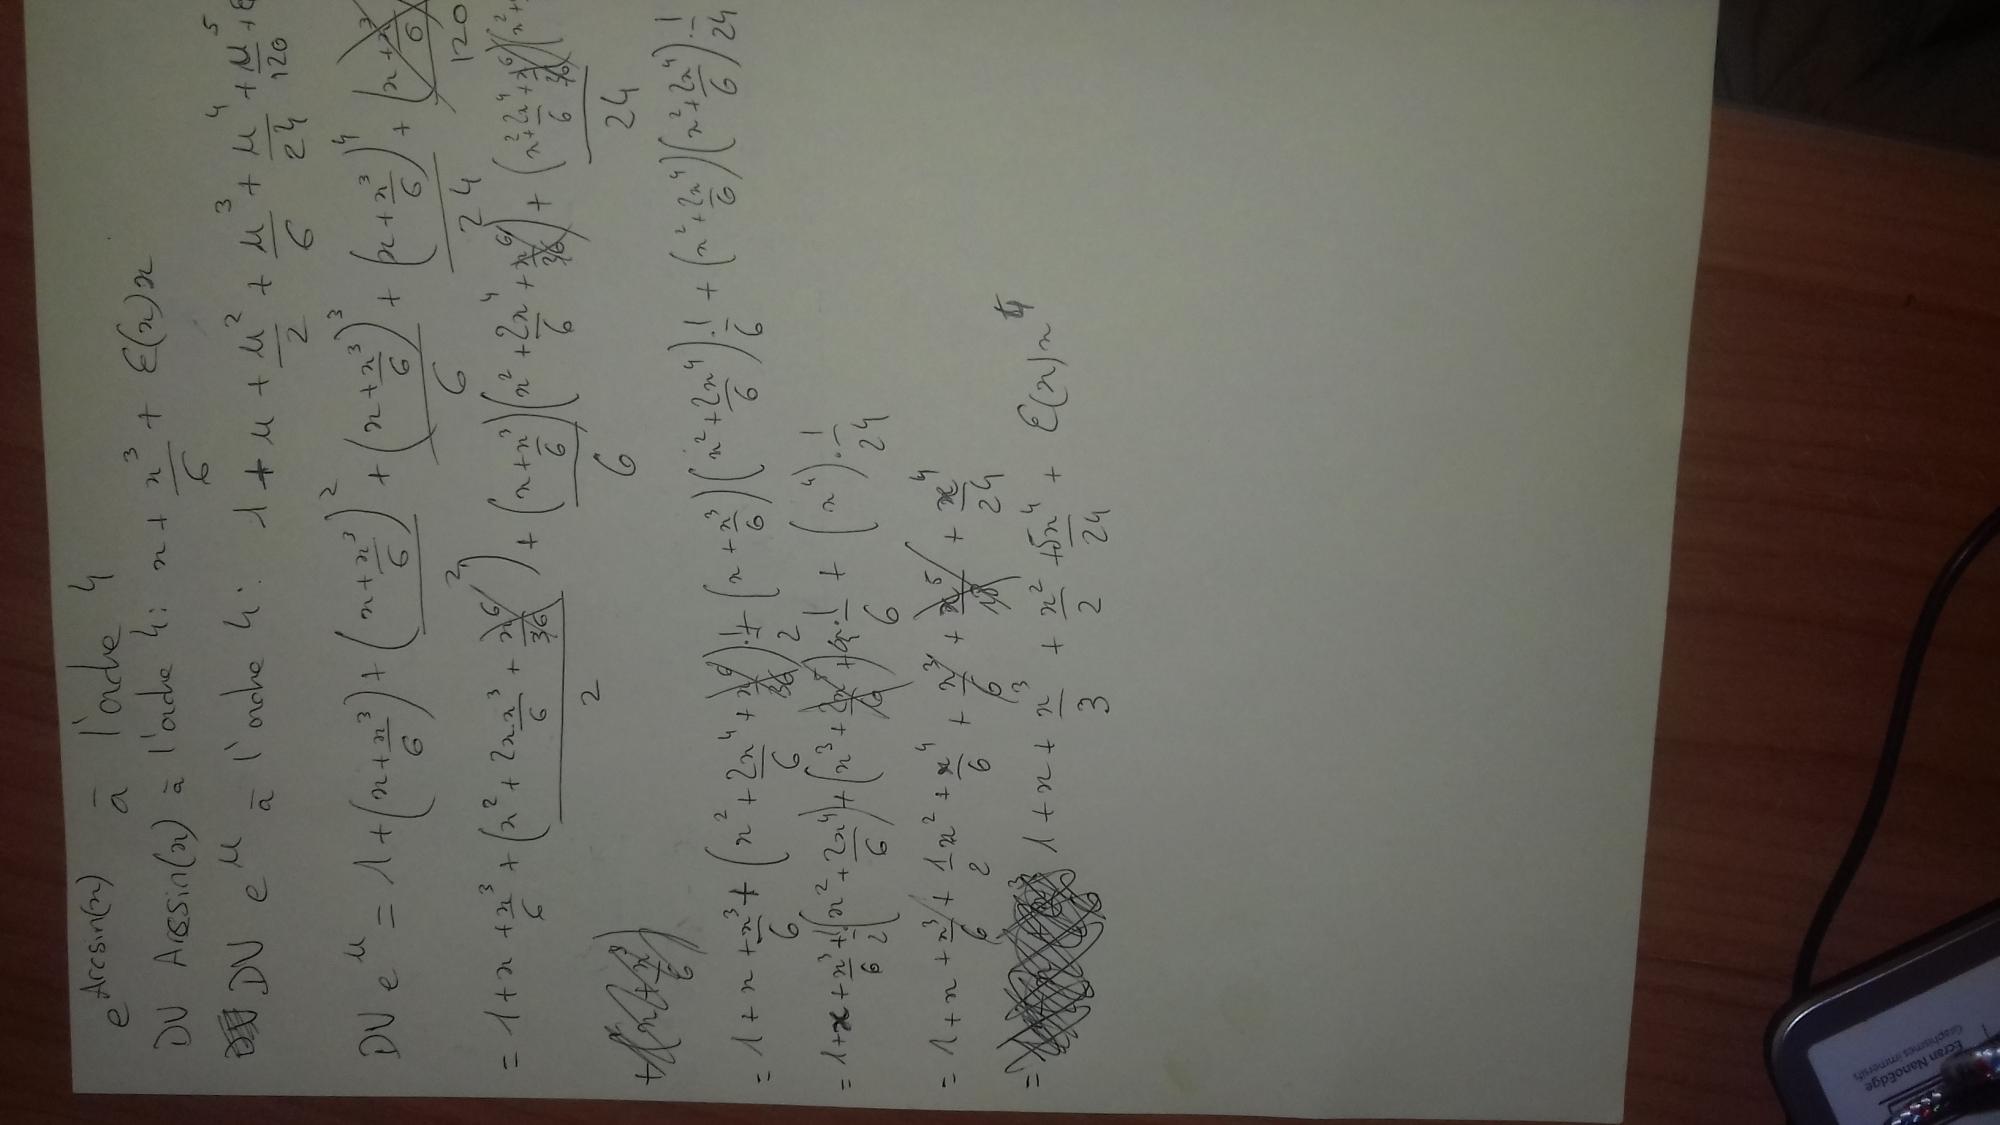 e^Arcsin(x) à l'ordre 4
DV Arcsin(x) à l'ordre 4: x + x³/6 + ε(x)x
DV e^u à l'ordre 4: 1 + u + u²/2 + u³/6 + u⁴/24 + u⁵/120
DV e^u = 1 + (x + x³/6) + (x + x³/6)²/2 + (x + x³/6)³/6 + (x + x³/6)⁴/24 + (x + x³/6)/120
= 1 + x + x³/6 + (x² + 2x x³/6 + x⁶/36)/2 + (x + x³/6)(x² + 2x⁴/6 + x⁶/36)/6 + (x² + 2x⁴/6 + x⁶/36)(x² +/24
= 1 + x + x³/6 + (x² + 2x⁴/6 + x⁶/36)·1/2 + (x + x³/6)(x² + 2x⁴/6)·1/6 + (x² + 2x⁴/6)(x² + 2x⁴/6)·1/24
= 1 + x + x³/6 + 1/2(x² + 2x⁴/6) + (x³ + )·1/6 + (x⁴)·1/24
= 1 + x + x³/6 + 1/2x² + x⁴/6 + x³/6 + x⁵/18 + x⁴/24
= 1 + x + x³/3 + x²/2 + 5x⁴/24 + ε(x)x⁴
Écran NanoEdge
Graphismes immersifs